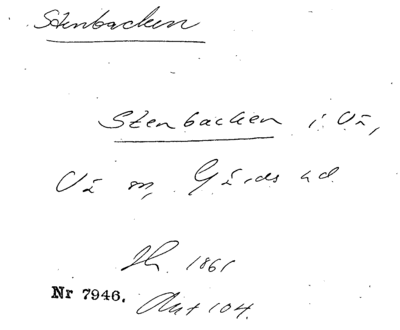 Stenbacken
Stenbacken i Vä,
Vä sn, Gärds hd.
Jb. 1861
Nr 7946. Akt 104.